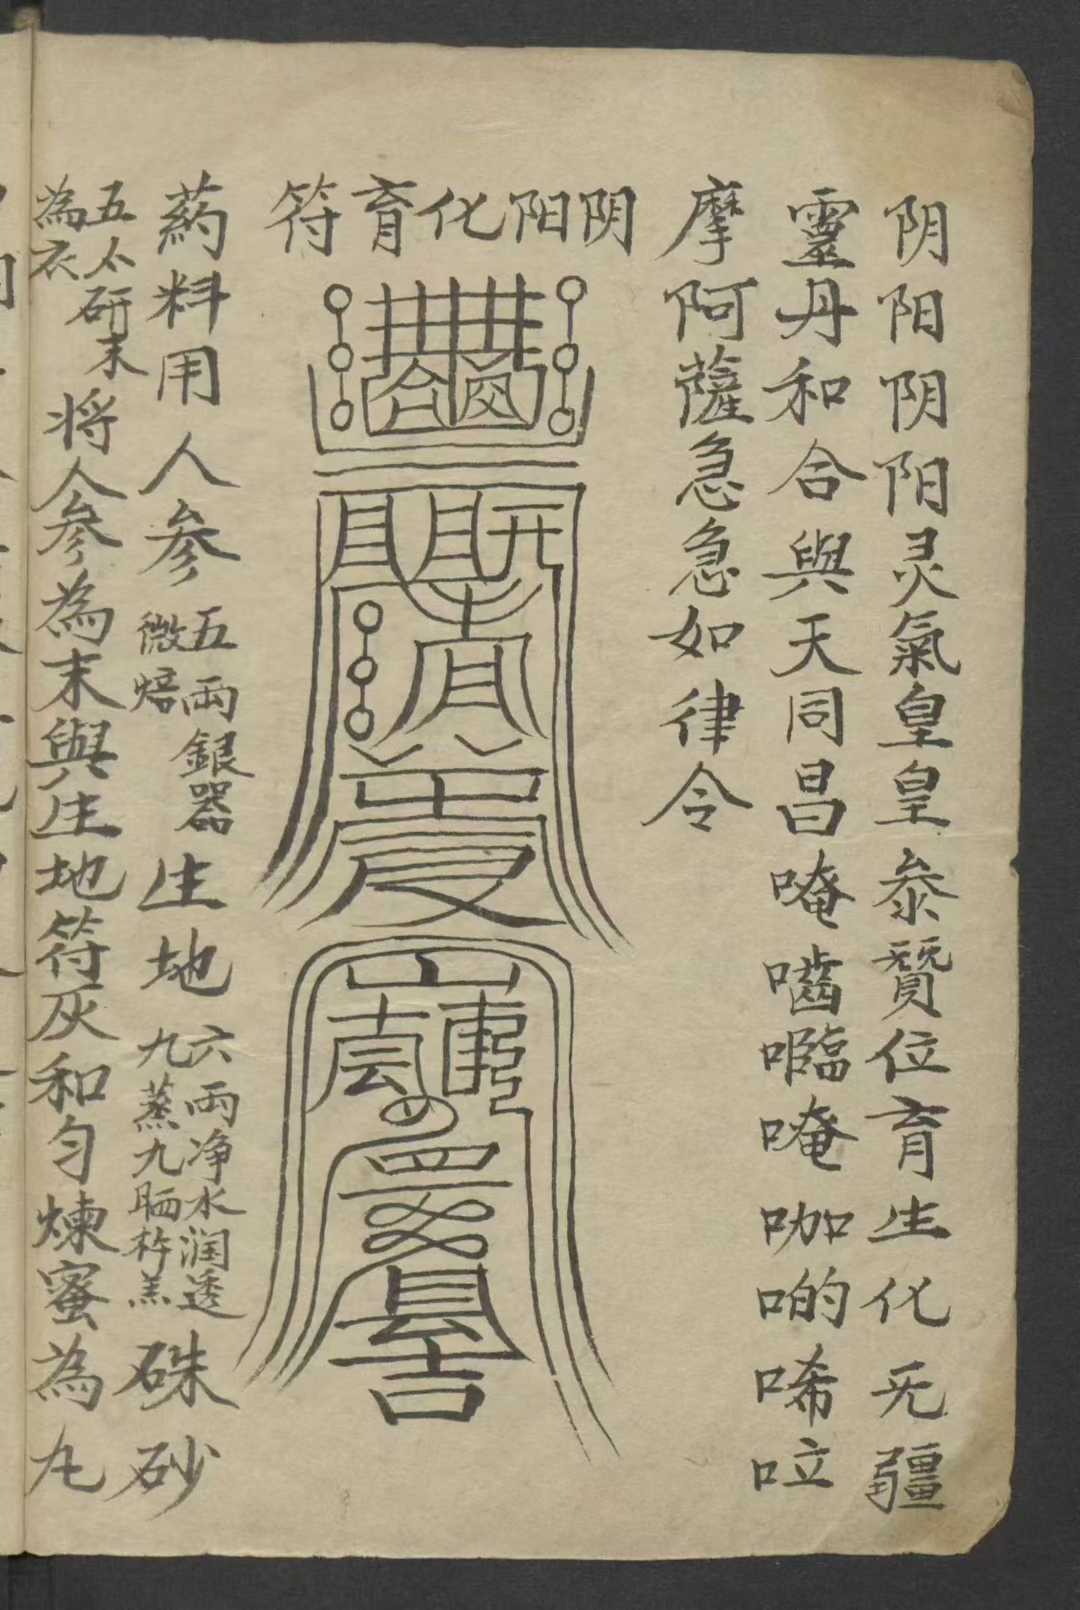 阴阳阴阳灵氣皇皇叅贊位育生化无疆
靈丹和合與天同昌唵嚙㘕唵咖啲唏㕸
摩阿薩急急如律令
阴阳化育符
药料用人参五兩銀器微焙生地六兩净水润透九蒸九晒杵羔硃砂
五不研末為衣将人参為末與生地符灰和匀煉蜜為丸